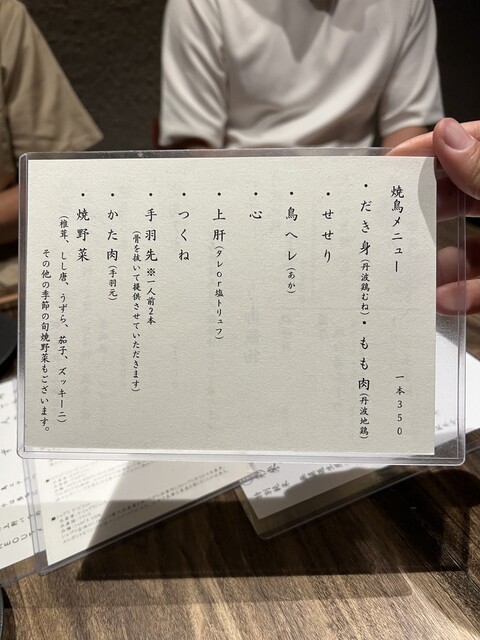 焼鳥メニュー 一本350
・だき身(丹波鶏むね)・もも肉(丹波地鶏)
・せせり
・鳥ヘレ(あか)
・心
・上肝(タレor塩トリュフ)
・つくね
・手羽先 ※一人前2本
(骨を抜いて提供させていただきます)
・かた肉(手羽元)
・焼野菜
(椎茸、しし唐、うずら、茄子、ズッキーニ)
その他の季節の旬焼野菜もございます。